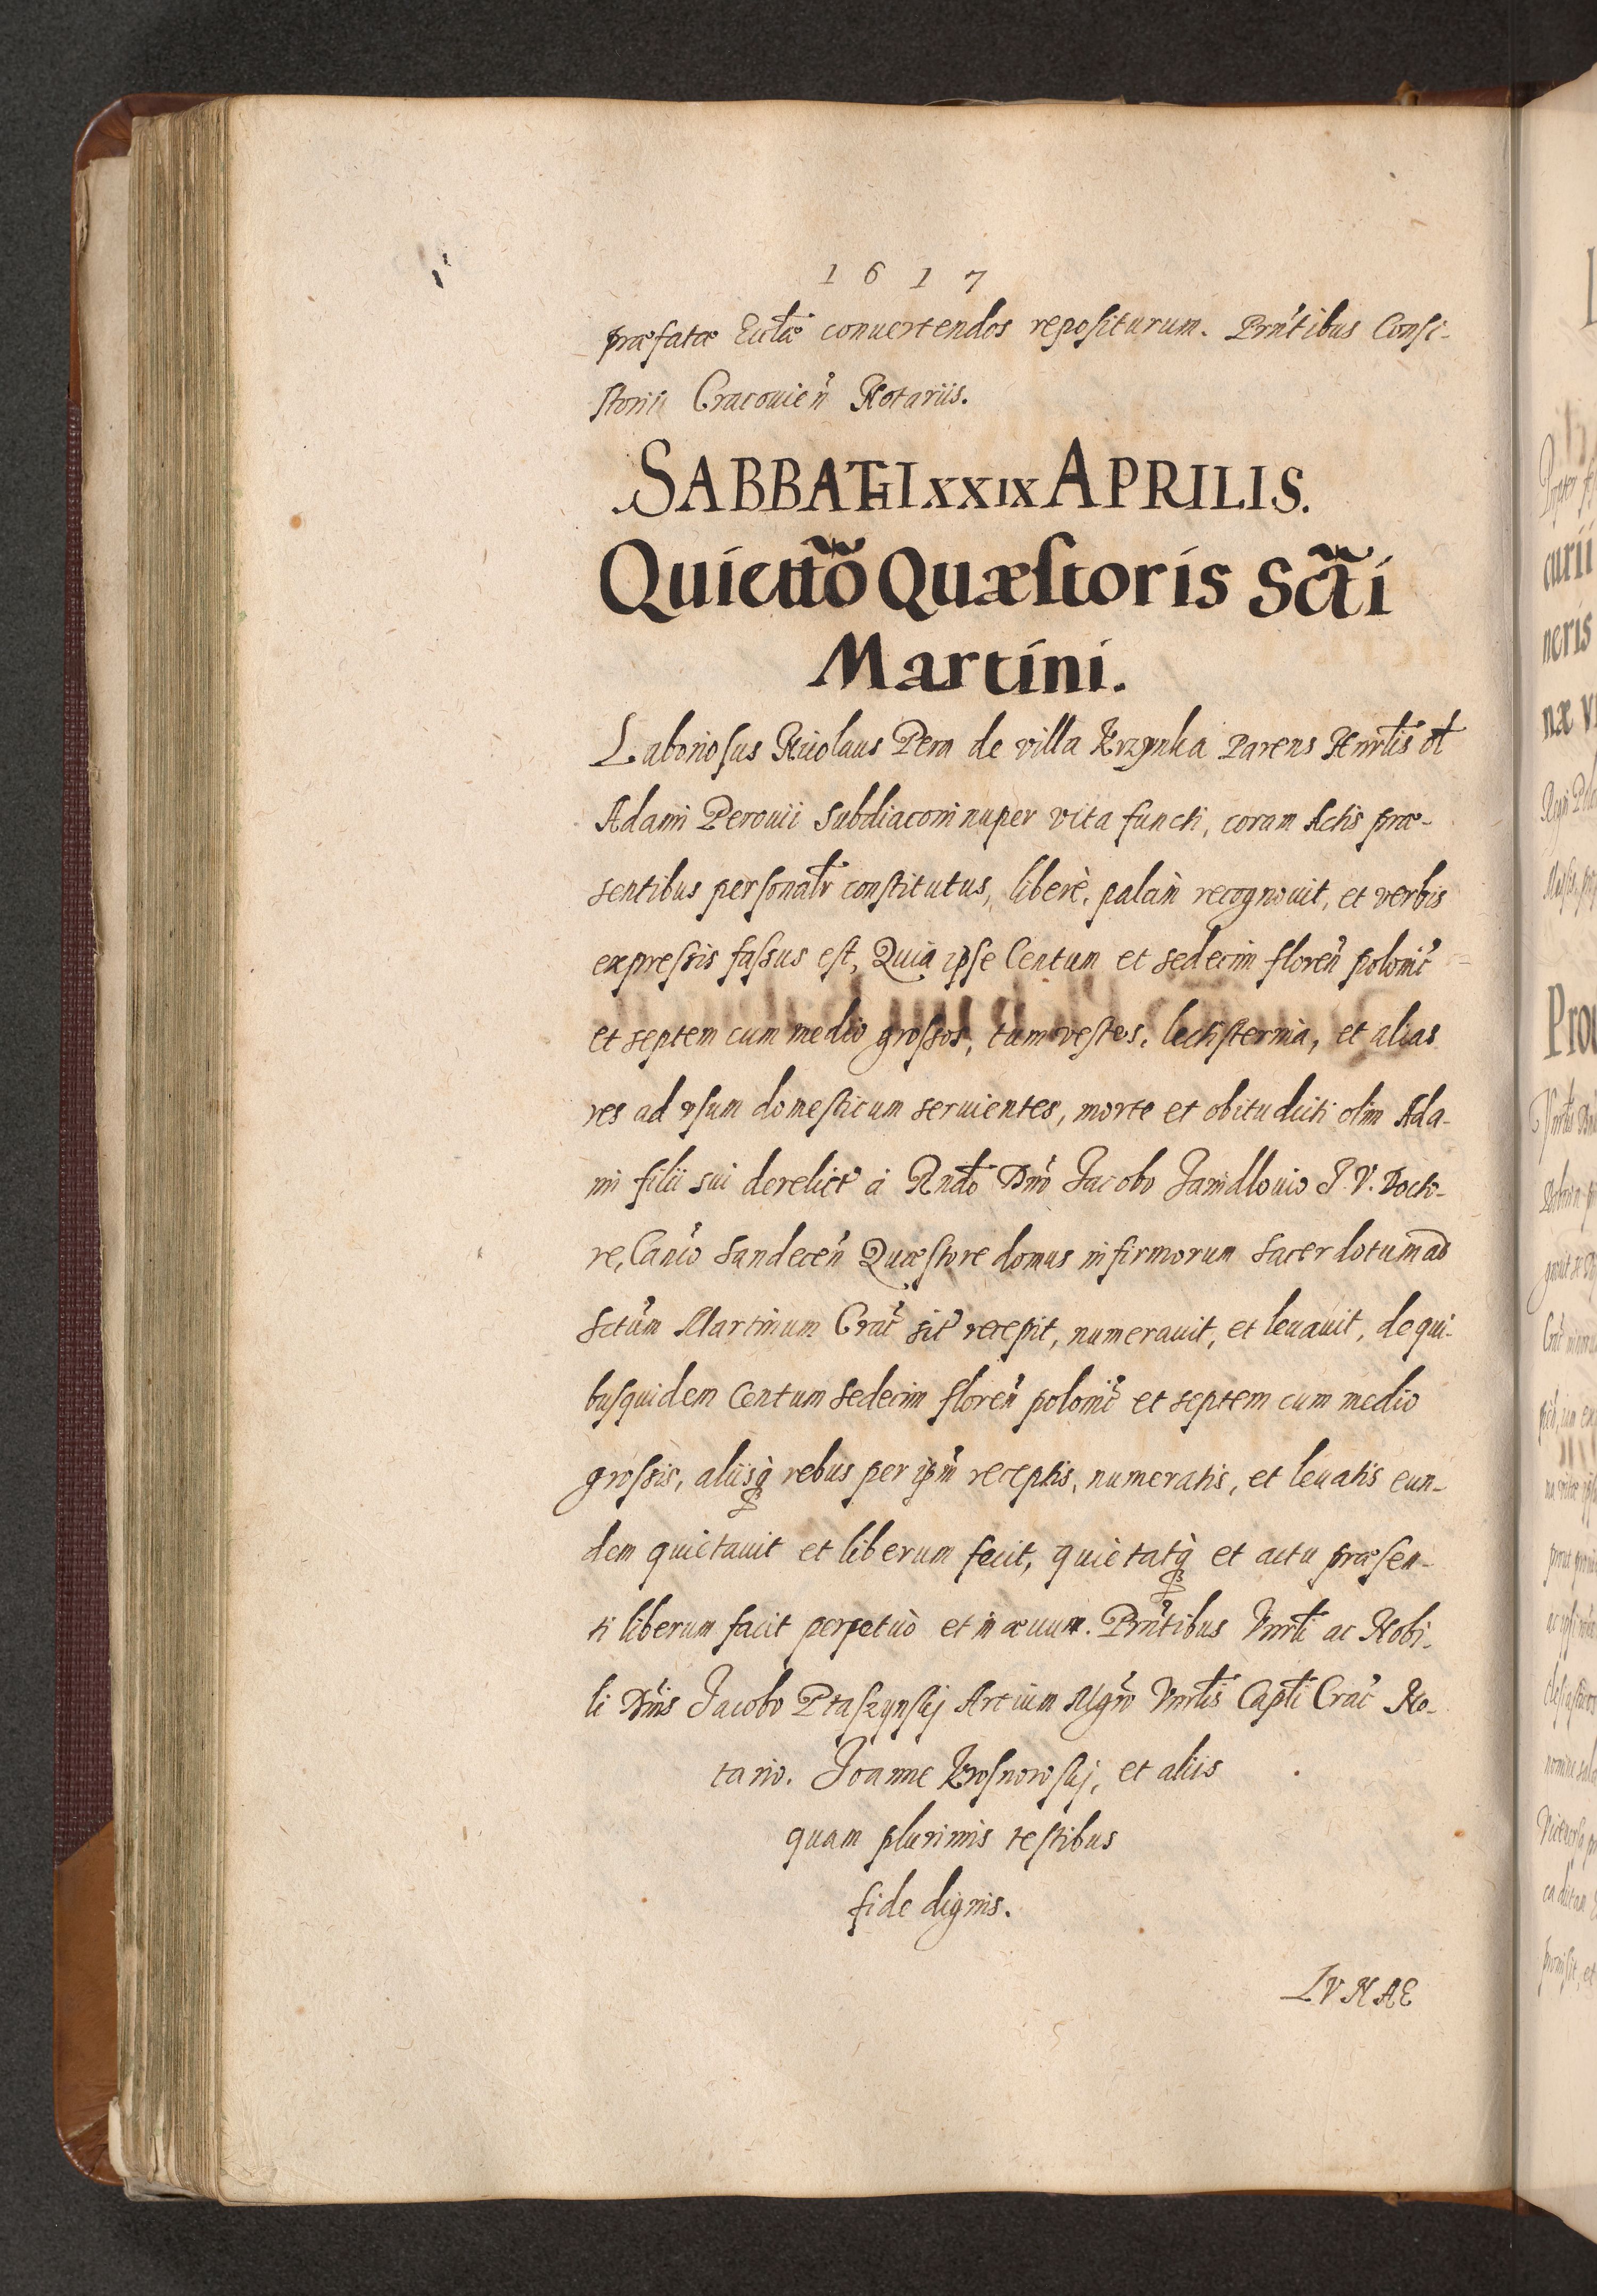 1617
præfatæ Eccłæ conuertendos repositurum. Prñtibus Consi-
storii Cracouieñ Notariis.
SABBATHI XXIX APRILIS.
Quietttõ Quæstoris Scti
Martini.
Laboriosus Nicolaus Pera de villa Krzynka parens Hnrłis ol
Adami Perouii Subdiaconi nuper vita functi, coram Actis præ-
sentibus personałr constitutus, liberè, palàm recognouit, et verbis
expressis fassus est, Quia ipse Centum et sedecim floreñ polonic
et septem cum medio grossos, tum vestes, lectisternia, et alias
res ad vsum domesticum seruientes, morte et obitu dicti olim Ada-
mi filii sui derelict à Rndo Dno Jacobo Janidlouio J. V. Docto-
re, Canco Sandeceñ Quæstore domus infirmorum Sacerdotum ad
Sctum Martinum Crac sit recepit, numerauit, et leuauit, de qui-
busquidem Centum Sedecim floreñ polonic et septem cum medio
grossis, aliisq rebus per ipm receptis, numeratis, et leuatis eun-
dem quietauit et liberum fecit, quietatq et actu præsen-
ti liberum facit perpetuò et in æuum. Prñtibus Vnrłi ac Nobi-
li Dnis Jacobo Ptaszynskij Artium Mgro Vnrłis Capłi Crac No-
tario. Joanne Krosnowskij, et aliis
quam plurimis testibus
fide dignis.
LVNAE